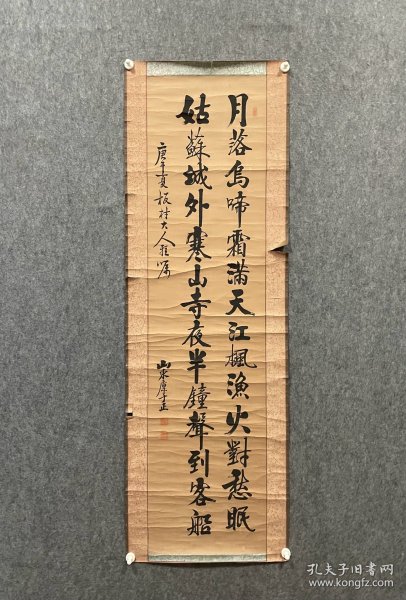 月落烏啼霜滿天江楓漁火對愁眠
姑蘇城外寒山寺夜半鐘聲到客船
庚午夏板村大人雅嘱
孔夫子旧书网
www.kongfz.com